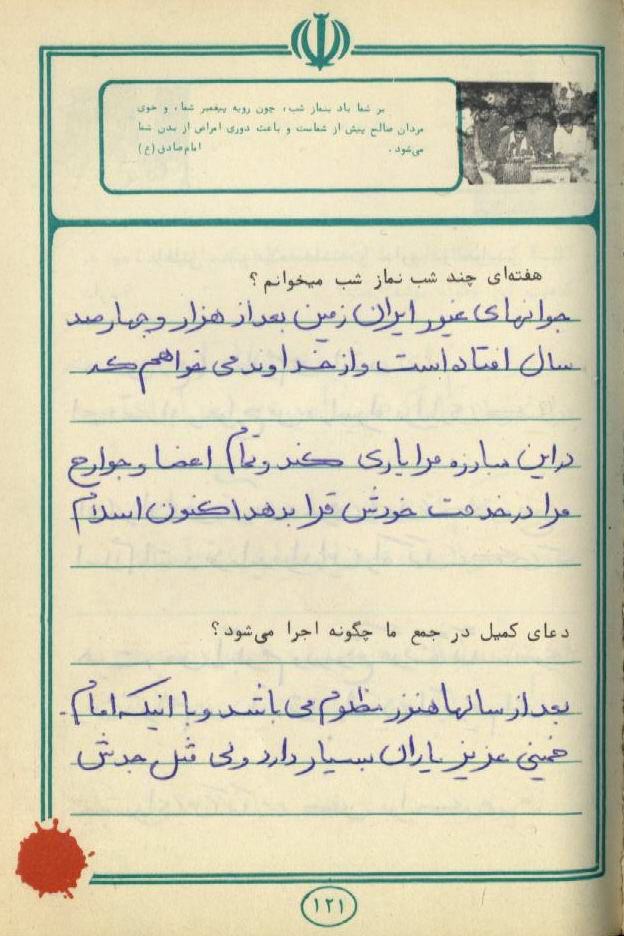 بر شما باد بنماز شب، چون رویه پیغمبر شما، و خوی
مردان صالح پیش از شماست و باعث دوری امراض از بدن شما
می‌شود. امام‌صادق (ع)
هفته‌ای چند شب نماز شب میخوانم؟
جوانهای غیور ایران زمین بعد از هزار و چهار صد
سال افتاده است و از خداوند می خواهم که
در این مبارزه مرا یاری کند و تمام اعضا و جوارح
مرا در خدمت خودش قرا بدهد اکنون اسلام
دعای کمیل در جمع ما چگونه اجرا می‌شود؟
بعد از سالها هنوز مظلوم می باشد و با اینکه امام
خمینی عزیز یاران بسیار دارد ولی مثل جدش
۱۲۱